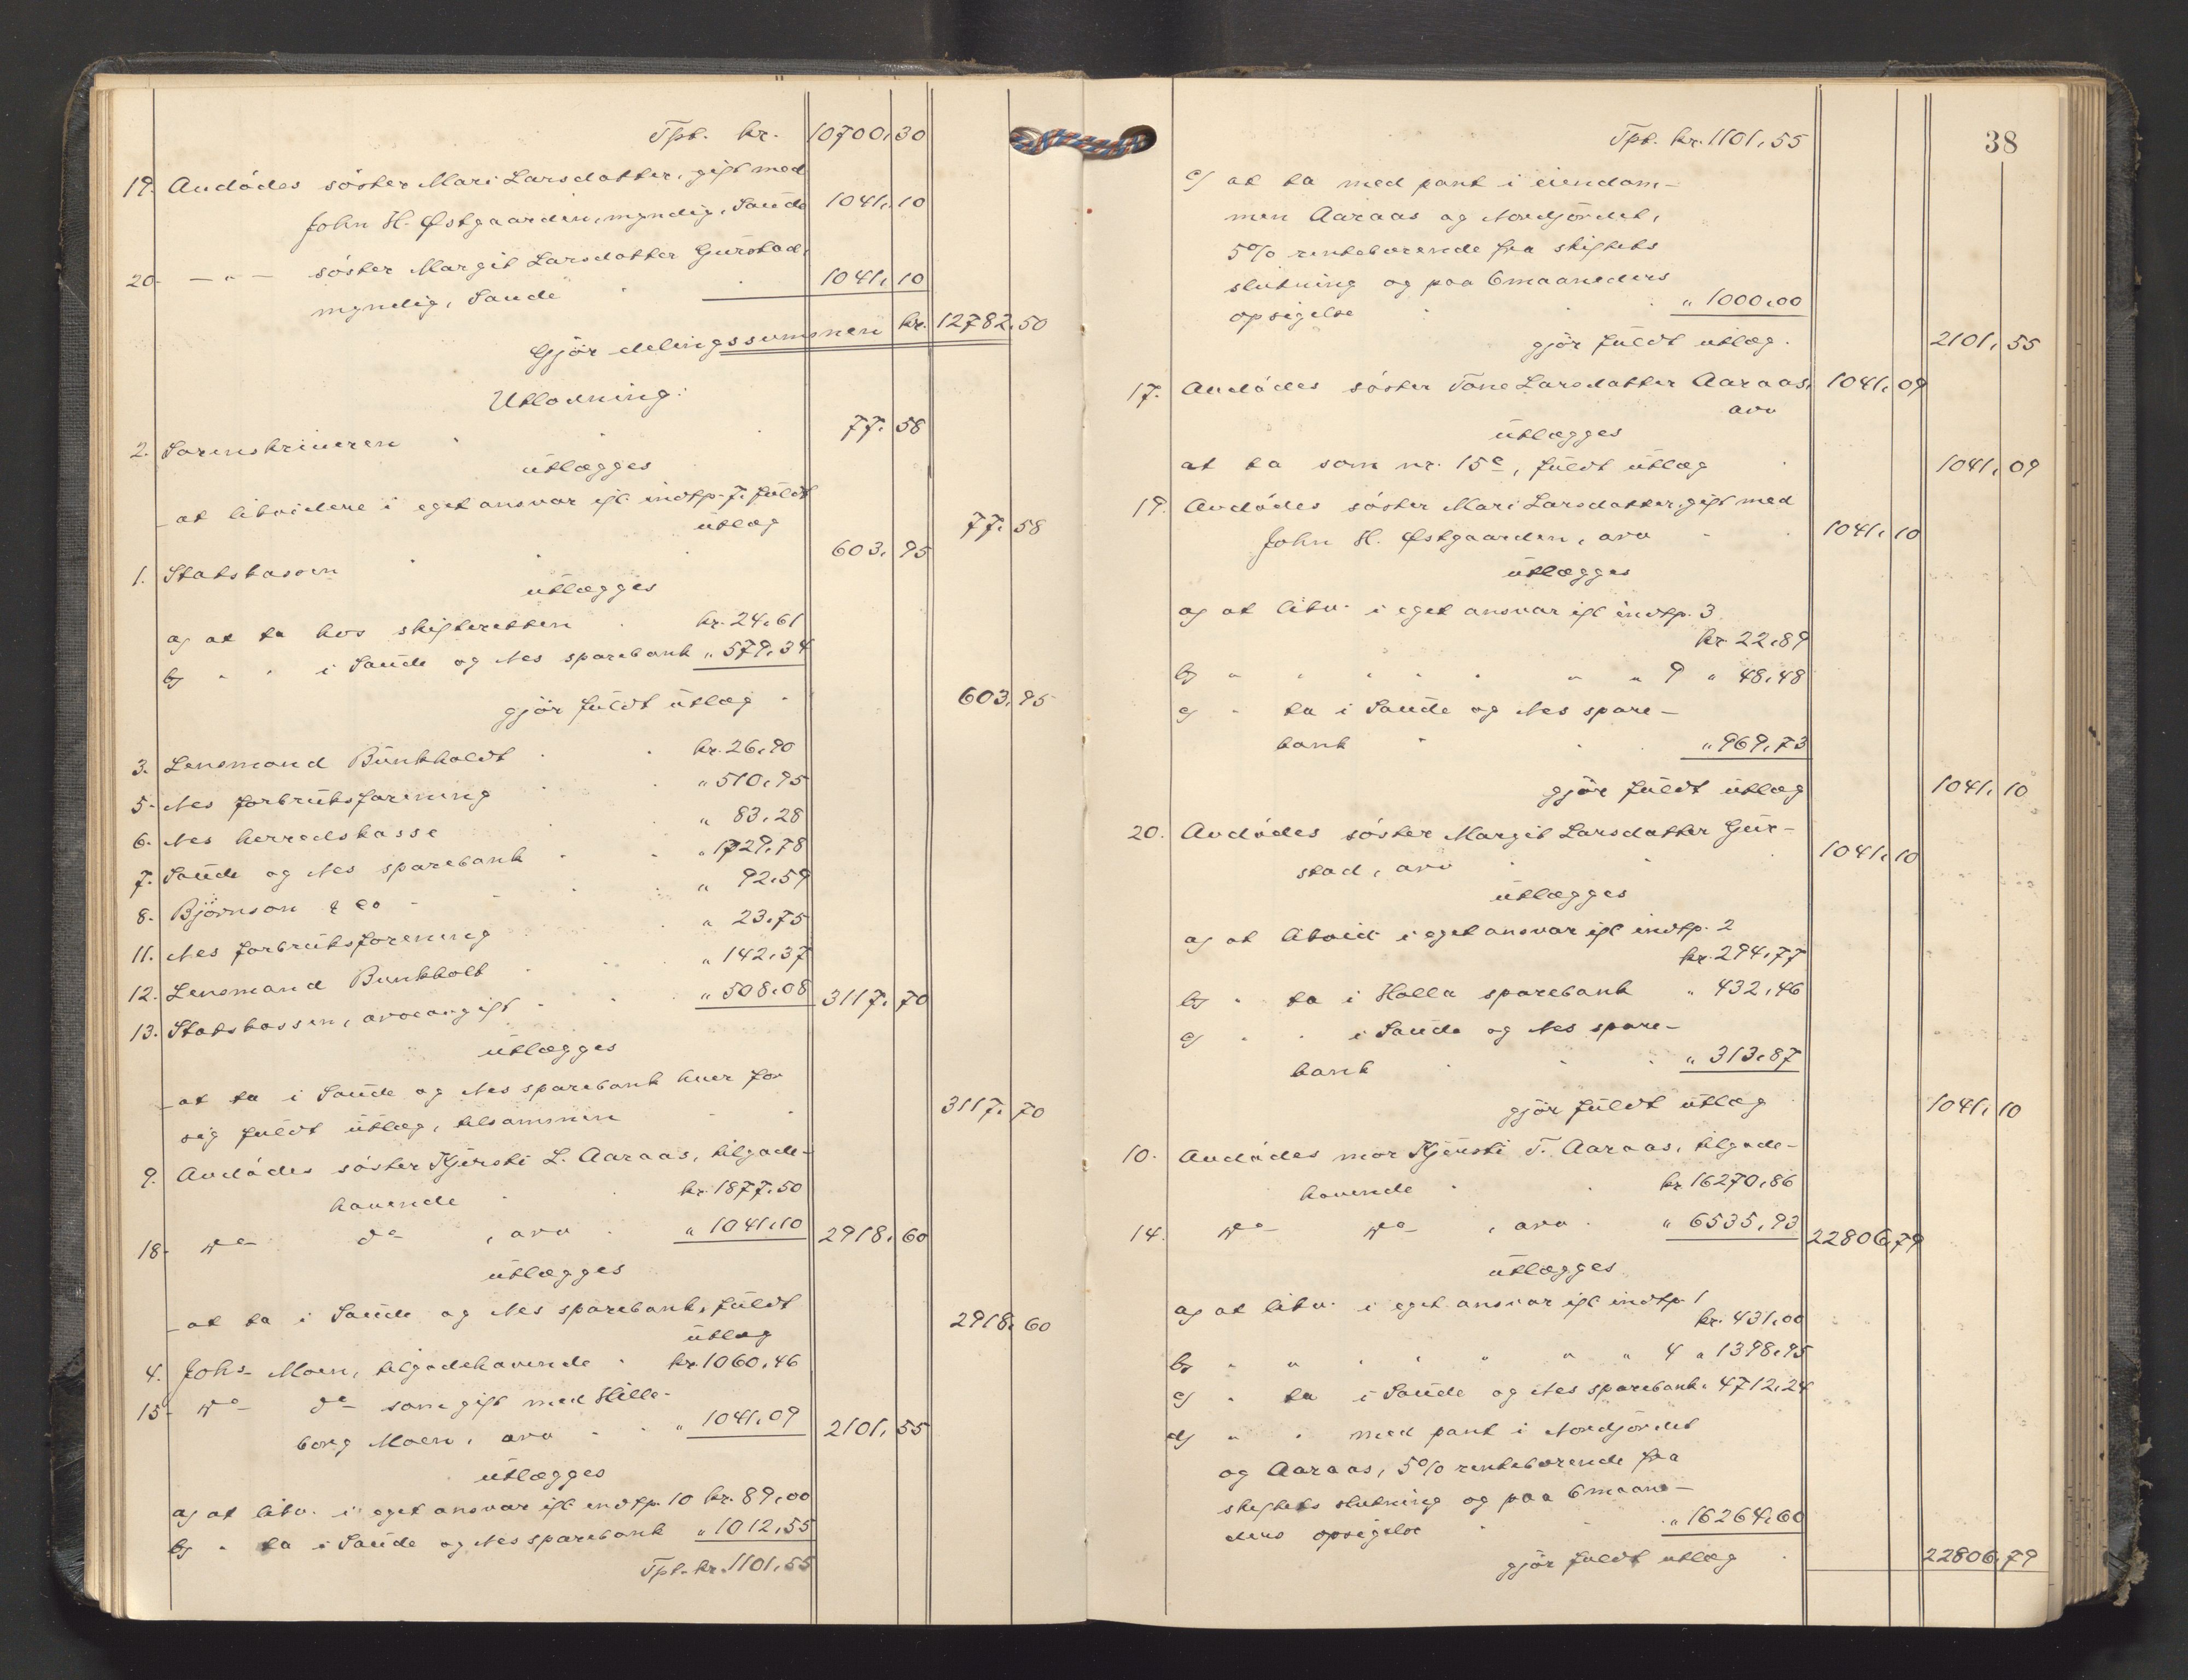 Tpt. kr. 10700,30
19. Avdødes søster Mari Larsdatter, gift med
John H. Østgaarden, myndig, Saude 1041,10
20. —"— søster Margit Larsdatter Gurstad,
myndig, Saude 1041,10
Gjør delingssummen kr. 12782,50
Utlodning:
2. Sorenskriveren 77,58
utlægges
at likvidere i eget ansvar ifl. indtp. 7, fuldt
utlæg 77,58
1. Statskassen 603,95
utlægges
a) at ta hos skifteretten kr. 24,61
b) " " i Saude og Nes sparebank " 579,34
gjør fuldt utlæg 603,95
3. Lensmand Bunkholdt kr. 26,90
5. Nes forbruksforening " 510,95
6. Nes herredskasse " 83,28
7. Saude og Nes sparebank " 1729,78
8. Bjørnson & Co " 92,59
11. Nes forbruksforening " 23,75
12. Lensmand Bunkholt " 142,37
13. Statskassen, arveavgift " 508,08 3117,70
utlægges
at ta i Saude og Nes sparebank hver for
sig fuldt utlæg, tilsammen 3117,70
9. Avdødes søster Kjersti L. Aaraas, tilgode-
havende kr. 1877,50
18. do do, arv " 1041,10 2918,60
utlægges
at ta i Saude og Nes sparebank, fuldt
utlæg 2918,60
4. Johs. Moen, tilgodehavende kr. 1060,46
15. do do som gift med Hille-
borg Moen, arv " 1041,09 2101,55
utlægges
a) at likv. i eget ansvar ifl. indtp. 10 kr. 89,00
b) " ta i Saude og Nes sparebank " 1012,55
Tpt. kr. 1101,55
38
Tpt. kr. 1101,55
c) at ta med pant i eiendom-
men Aaraas og Nordjordet,
5% rentebærende fra skiftets
slutning og paa 6 maaneders
opsigelse " 1000,00
gjør fuldt utlæg. 2101,55
17. Avdødes søster Tone Larsdatter Aaraas, 1041,09
arv
utlægges
at ta som nr. 15c, fuldt utlæg 1041,09
19. Avdødes søster Mari Larsdatter, gift med
John H. Østgaarden, arv 1041,10
utlægges
a) at likv. i eget ansvar ifl. indtp. 3
kr. 22,89
b) " " " " " " " 9 " 48,48
c) " ta i Saude og Nes spare-
bank " 969,73
gjør fuldt utlæg 1041,10
20. Avdødes søster Margit Larsdatter Gur-
stad, arv 1041,10
utlægges
a) at likvid. i eget ansvar ifl. indtp. 2
kr. 294,77
b) " ta i Holla sparebank " 432,46
c) " " i Saude og Nes spare-
bank " 313,87
gjør fuldt utlæg 1041,10
10. Avdødes mor Kjersti T. Aaraas, tilgode-
havende kr. 16270,86
14. do do, arv " 6535,93 22806,79
utlægges
a) at likv. i eget ansvar ifl. indtp. 1
kr. 431,00
b) " " " " " " " 4 " 1398,95
c) " ta i Saude og Nes sparebank " 4712,24
d) " " med pant i Nordjordet
og Aaraas, 5% rentebærende fra
skiftets slutning og paa 6 maane-
ders opsigelse " 16264,60
gjør fuldt utlæg 22806,79